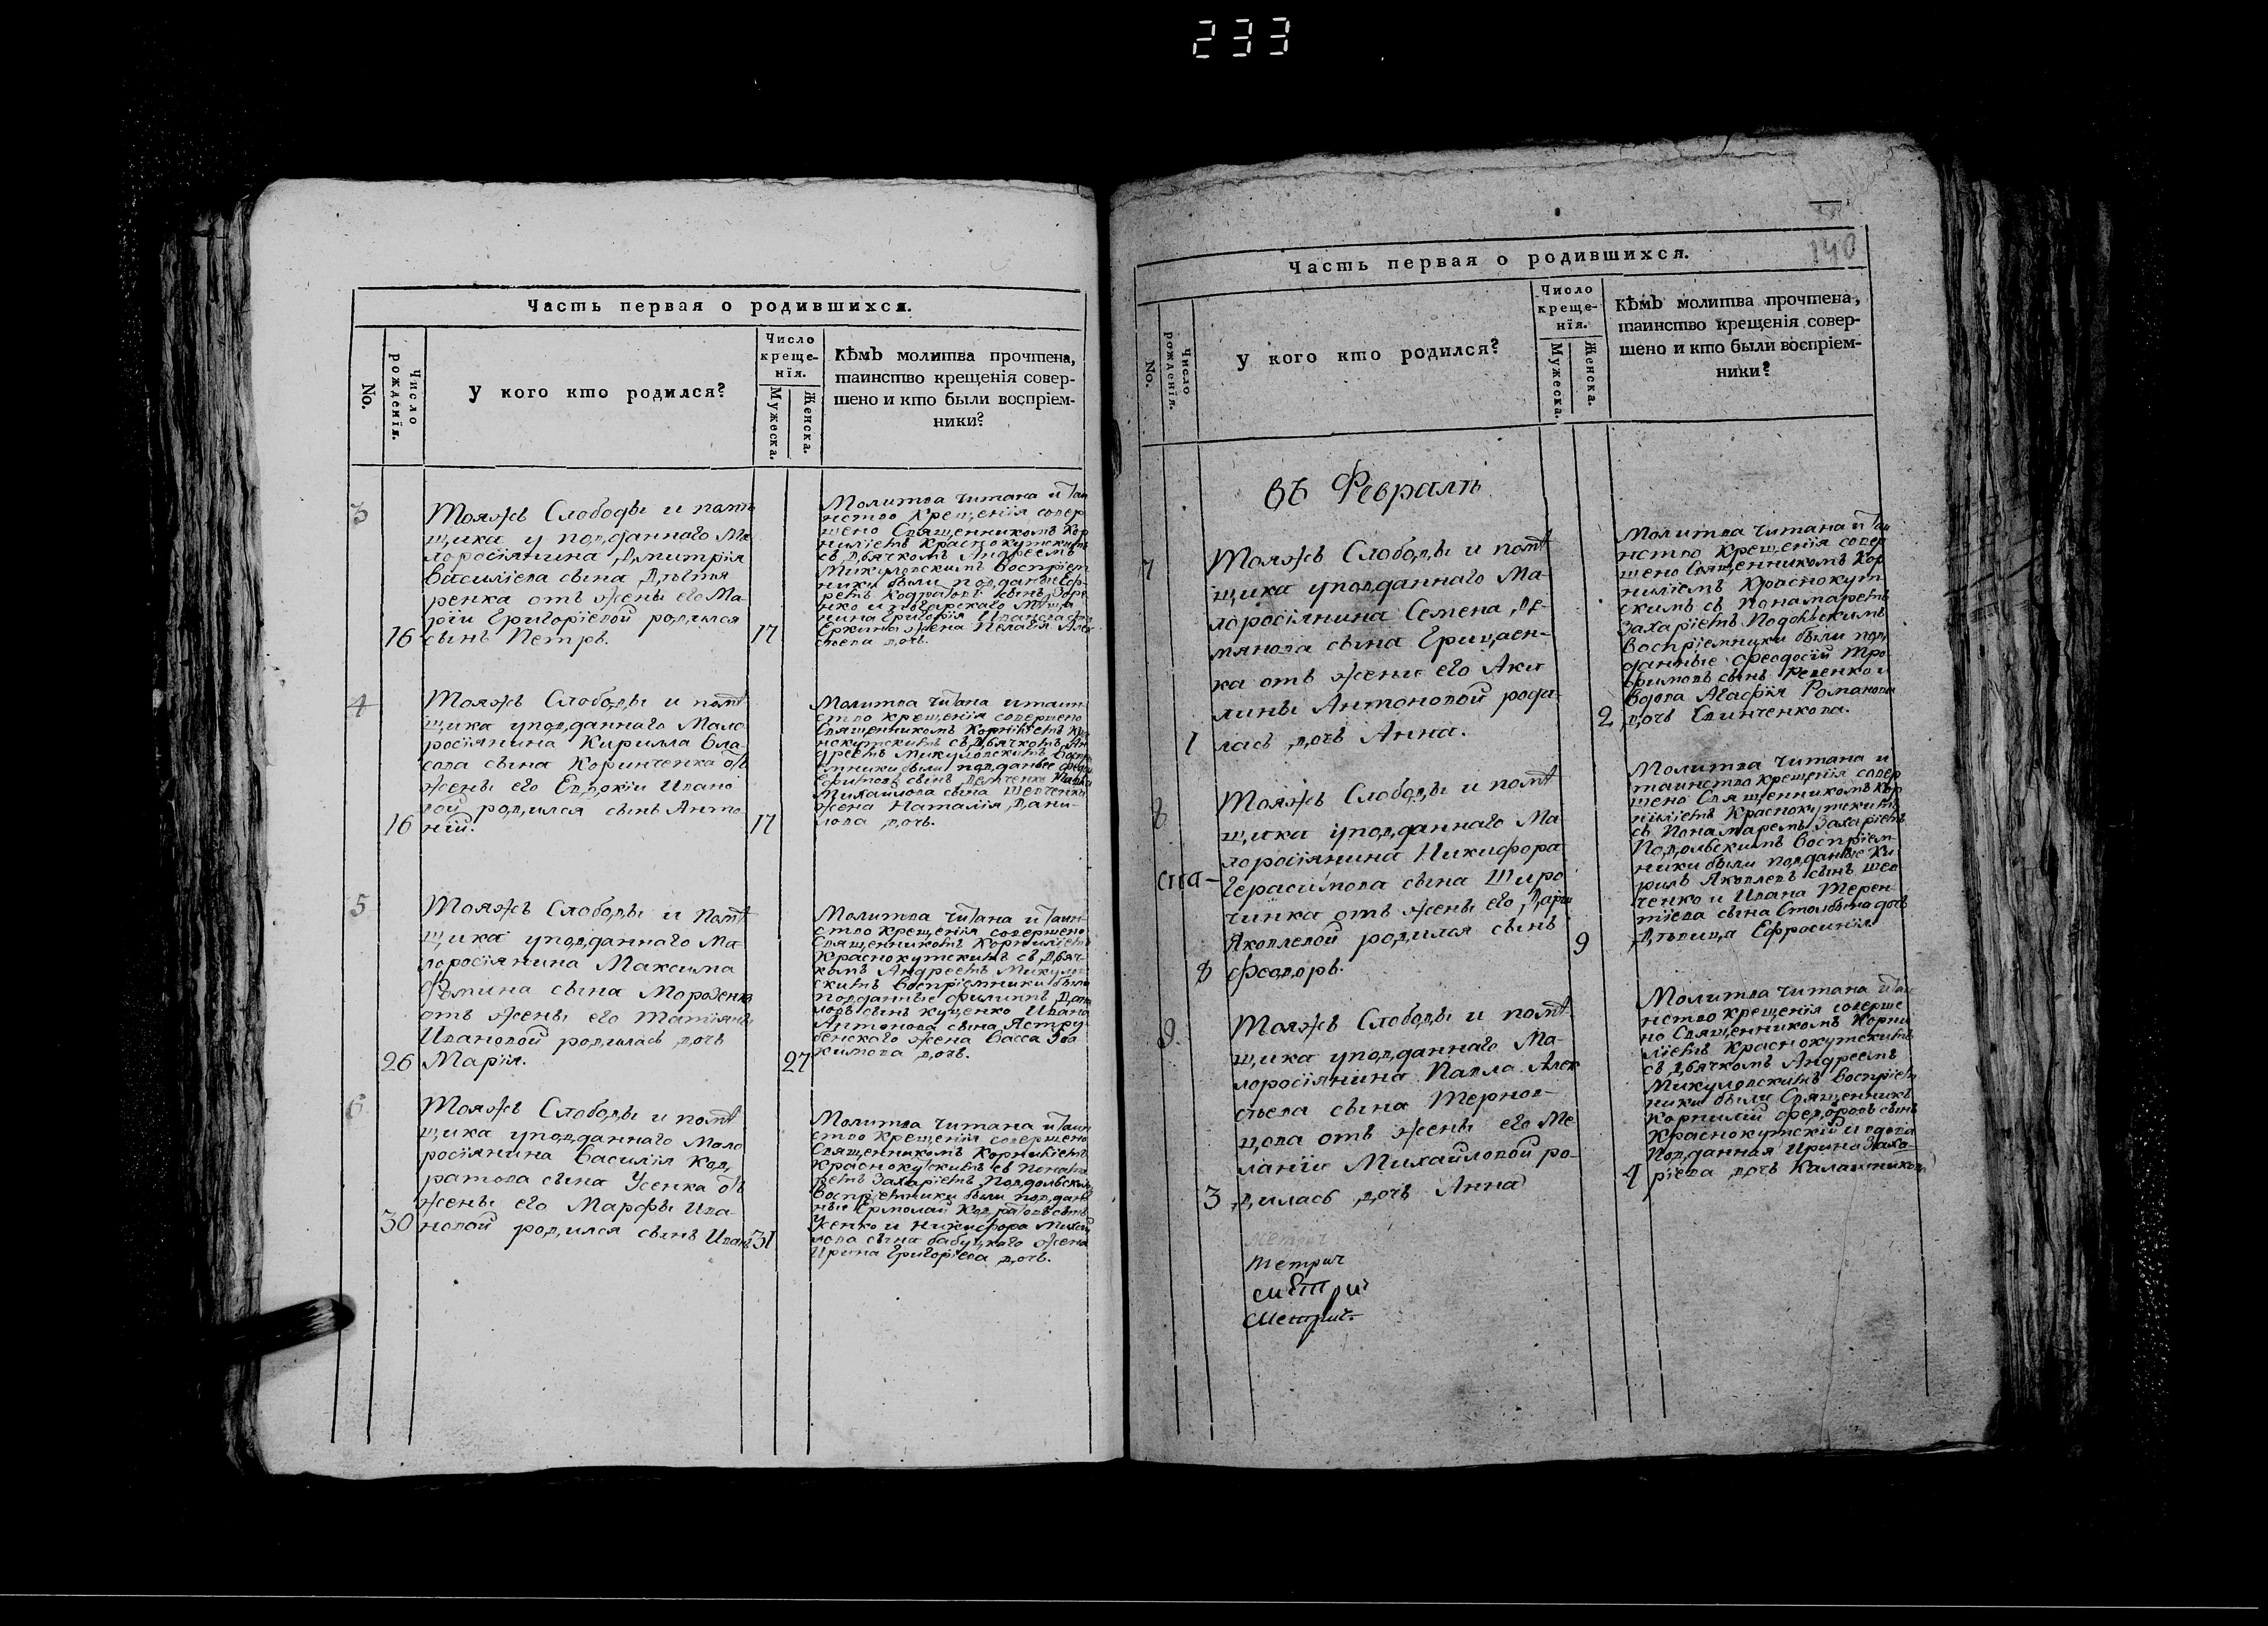 233
Часть первая о родившихся.
No.
Число рожденія.
У кого кто родился?
Число креще-
нїя.
Мужеска.
Женска.
Кѣмъ молитва прочтена,
таинство крещенія совер-
шено и кто были воспріем-
ники?
3
Тояжъ Слободы и помѣ
щика у подданнаго Ма
лоросіянина Дмитрія
Василіева сына Дѣгтя
ренка отъ жены его Ма-
ріи Григоріевой родился
16 сынъ Петръ. 17
Молитва читана и таи
нство крещенія совер
шено Священникомъ Кор
ниліемъ Краснокутскимъ
съ Дьячкомъ Андреемъ
Микуловскимъ воспріем
ники были подданые
сынъ
нко и
нина Григорія Иванова
жена Пелагія Алек
сѣева дочь.
4
Тояжъ Слободы и помѣ
щика уподданнаго Мало
росіянина Кирилла Вла-
сова сына Коринченка отъ
жены его Евдокіи Ивано
вой родился сынъ Анто
16 ній. 17
Молитва читана итаин
ство крещенія совершено
Священникомъ Корниліемъ Кра
снокутскимъ съ Дьячкомъ Ан
дреемъ Микуловскимъ воспрі
емники были подданые
Ефимовъ сынъ
Михайлова сына Шевченка
жена Наталія Дани-
лова дочь.
5
Тояжъ Слободы и помѣ
щика уподданнаго Ма-
лоросіянина Максима
Фомина сына Морозенка
отъ жены его Татіяны
Ивановой родилась дочь
26 Марія. 27
Молитва читана и таин-
ство крещенія совершено
Священникомъ Корниліемъ
Краснокутскимъ съ Дьяч-
комъ Андреемъ Микулов
скимъ воспріемники были
подданные Филиппъ Дани
ловъ сынъ Куценко Ивана
Антонова сына Ястру-
бенского жена Васса Іоа
кимова дочь.
6
Тояжъ Слободы и помѣ
щика уподданнаго Мало
росіянина Василія Код,
ратова сына Усенка отъ
жены его Марфы Ива-
30 новой родился сынъ Иванъ 31
Молитва читана и таин
ство крещенія совершено
Священникомъ Корниліемъ
Краснокутскимъ съ Понама
ремъ Захаріемъ Подольскимъ
воспріемники были поддан
ные Ермолай Кодратовъ сынъ
Усенко и Никифора Михай
лова сына Бабуцкаго жена
Ирина Григоріева дочь.
140
Часть первая о родившихся.
No.
Число рожденія.
У кого кто родился?
Число креще-
нїя.
Мужеска.
Женска.
Кѣмъ молитва прочтена,
таинство крещенія совер-
шено и кто были воспріем-
ники?
въ Февралѣ
7
Тояжъ Слободы и помѣ
щика уподданнаго Ма-
лоросіянина Семена Де-
мянова сына Грицаен-
ка отъ жены его Аки
лины Антоновой роди-
1 лась дочь Анна. 2
Молитва читана и таи
нство крещенія совер
шено Священникомъ Кор
ниліемъ Краснокут-
скимъ съ Понамаремъ
Захаріемъ Подольскимъ
воспріемники были под
данные Феодосій Тро
фимовъ сынъ Резенко и
вдова Агафія Романова
дочь Свинченкова.
8
Тояжъ Слободы и помѣ
щика уподданнаго Ма-
лоросіянина Никифора
Герасимова сына Широ
чинка отъ жены его Дарьи
Яковлевой родился сынъ
8 Феодоръ. 9
Молитва читана и
таинство крещенія совер
шено Священникомъ Кор
ниліемъ Краснокутскимъ
съ Понамаремъ Захаріемъ
Подольскимъ воспріем-
ники были подданые Ки
рилъ Яковлевъ сынъ Шев
ченко и Ивана Терен-
тіева сына дочь
Дѣвица Ефросинія.
9.
Тояжъ Слободы и помѣ
щика уподданнаго Ма-
лоросіянина Павла Алек
сѣева сына Тернов-
цова отъ жены его Ме
ланіи Михайловой ро-
3 дилась дочь Анна 4
Молитва читана и таи
нство крещенія соверше
но Священникомъ Корни
ліемъ Краснокутскимъ
съ Дьячкомъ Андреемъ
Микуловскимъ воспріем
ники были Священникъ
Корнилій Федоровъ сынъ
Краснокутскій и вдова
Подданная Ирина Заха-
ріева дочь Калашникова
Метрич
Метрич